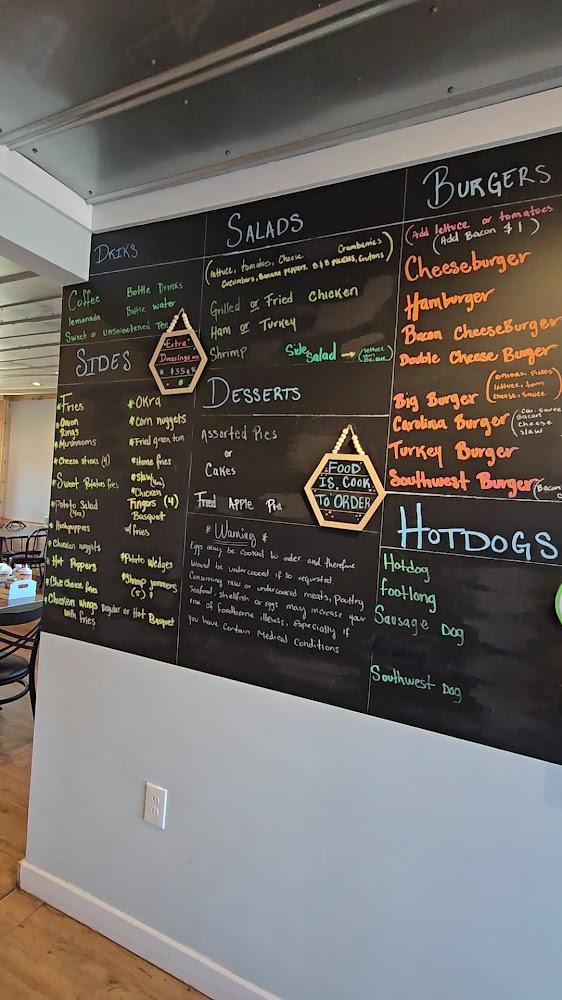 DRIKS
Coffee Bottle Drinks
lemonade Bottle water
Sweet or Unsweetened Tea
SIDES
*Fries
*Onion
Rings
*Mushrooms
*Cheese sticks (4)
*Sweet Potatoes fries
*Potato Salad
(4oz)
*Hushpuppies
*Chicken nuggets
*Hot Poppers
*Chili Cheese fries
*Chicken wings Regular or Hot Basquet
with fries
*OKra
*Corn nuggets
*Fried green tom
*Home fries
*Slaw (4oz)
*Chicken
Fingers (4)
Basquet
w/ fries
*Potato Wedges
*Shrimp yammers
(5)
Extra
Dressings
SALADS
(lettuce, tomatoes, Cheese, Cramberries
Cucumbers, Banana peppers, B&B pickles, Crutons)
Grilled or Fried Chicken
Ham or Turkey
Shrimp
Side Salad → (lettuce
DESSERTS
Assorted Pies
or
Cakes
Fried Apple Pie
FOOD
IS COOK
TO ORDER
* Warning *
Eggs may be cooked to order and therefore
Would be undercooked if so requested.
Consuming raw or undercooked meats, poultry
Seafood, shellfish or eggs may increase your
risk of foodborne illness, Especially if
you have Certain Medical Conditions
BURGERS
(Add lettuce or tomatoes
(Add Bacon $1)
Cheeseburger
Hamburger
Bacon CheeseBurger
Double Cheese Burger
Big Burger (onions, Pickles
lettuce, tom
cheese, sauce)
Carolina Burger (
Bacon
cheese
slaw
Turkey Burger
Southwest Burger (Bacon
HOTDOGS
Hotdog
footlong
Sausage Dog
Southwest Dog